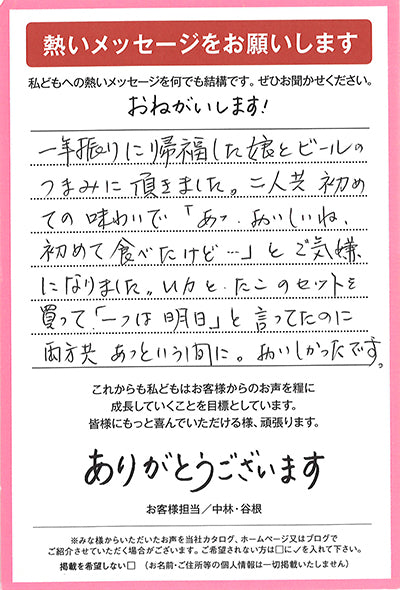 熱いメッセージをお願いします
私どもへの熱いメッセージを何でも結構です。ぜひお聞かせください。
おねがいします!
一年振りに帰福した娘とビールの
つまみに頂きました。二人共 初め
ての 味わいで 「あっ、おいしいね、
初めて 食べたけど…」と ご気嫌
になりました。いかと、たこ のセットを
買って「一つは 明日」と 言ってたのに
両方共 あっという間に。おいしかったです。
これからも私どもはお客様からのお声を糧に
成長していくことを目標としています。
皆様にもっと喜んでいただける様、頑張ります。
ありがとうございます
お客様担当／中林・谷根
※みな様からいただいたお声を当社カタログ、ホームページ又はブログで
ご紹介させていただく場合がございます。ご希望されない方は□に✓を入れて下さい。
掲載を希望しない□ （お名前・ご住所等の個人情報は一切掲載いたしません）